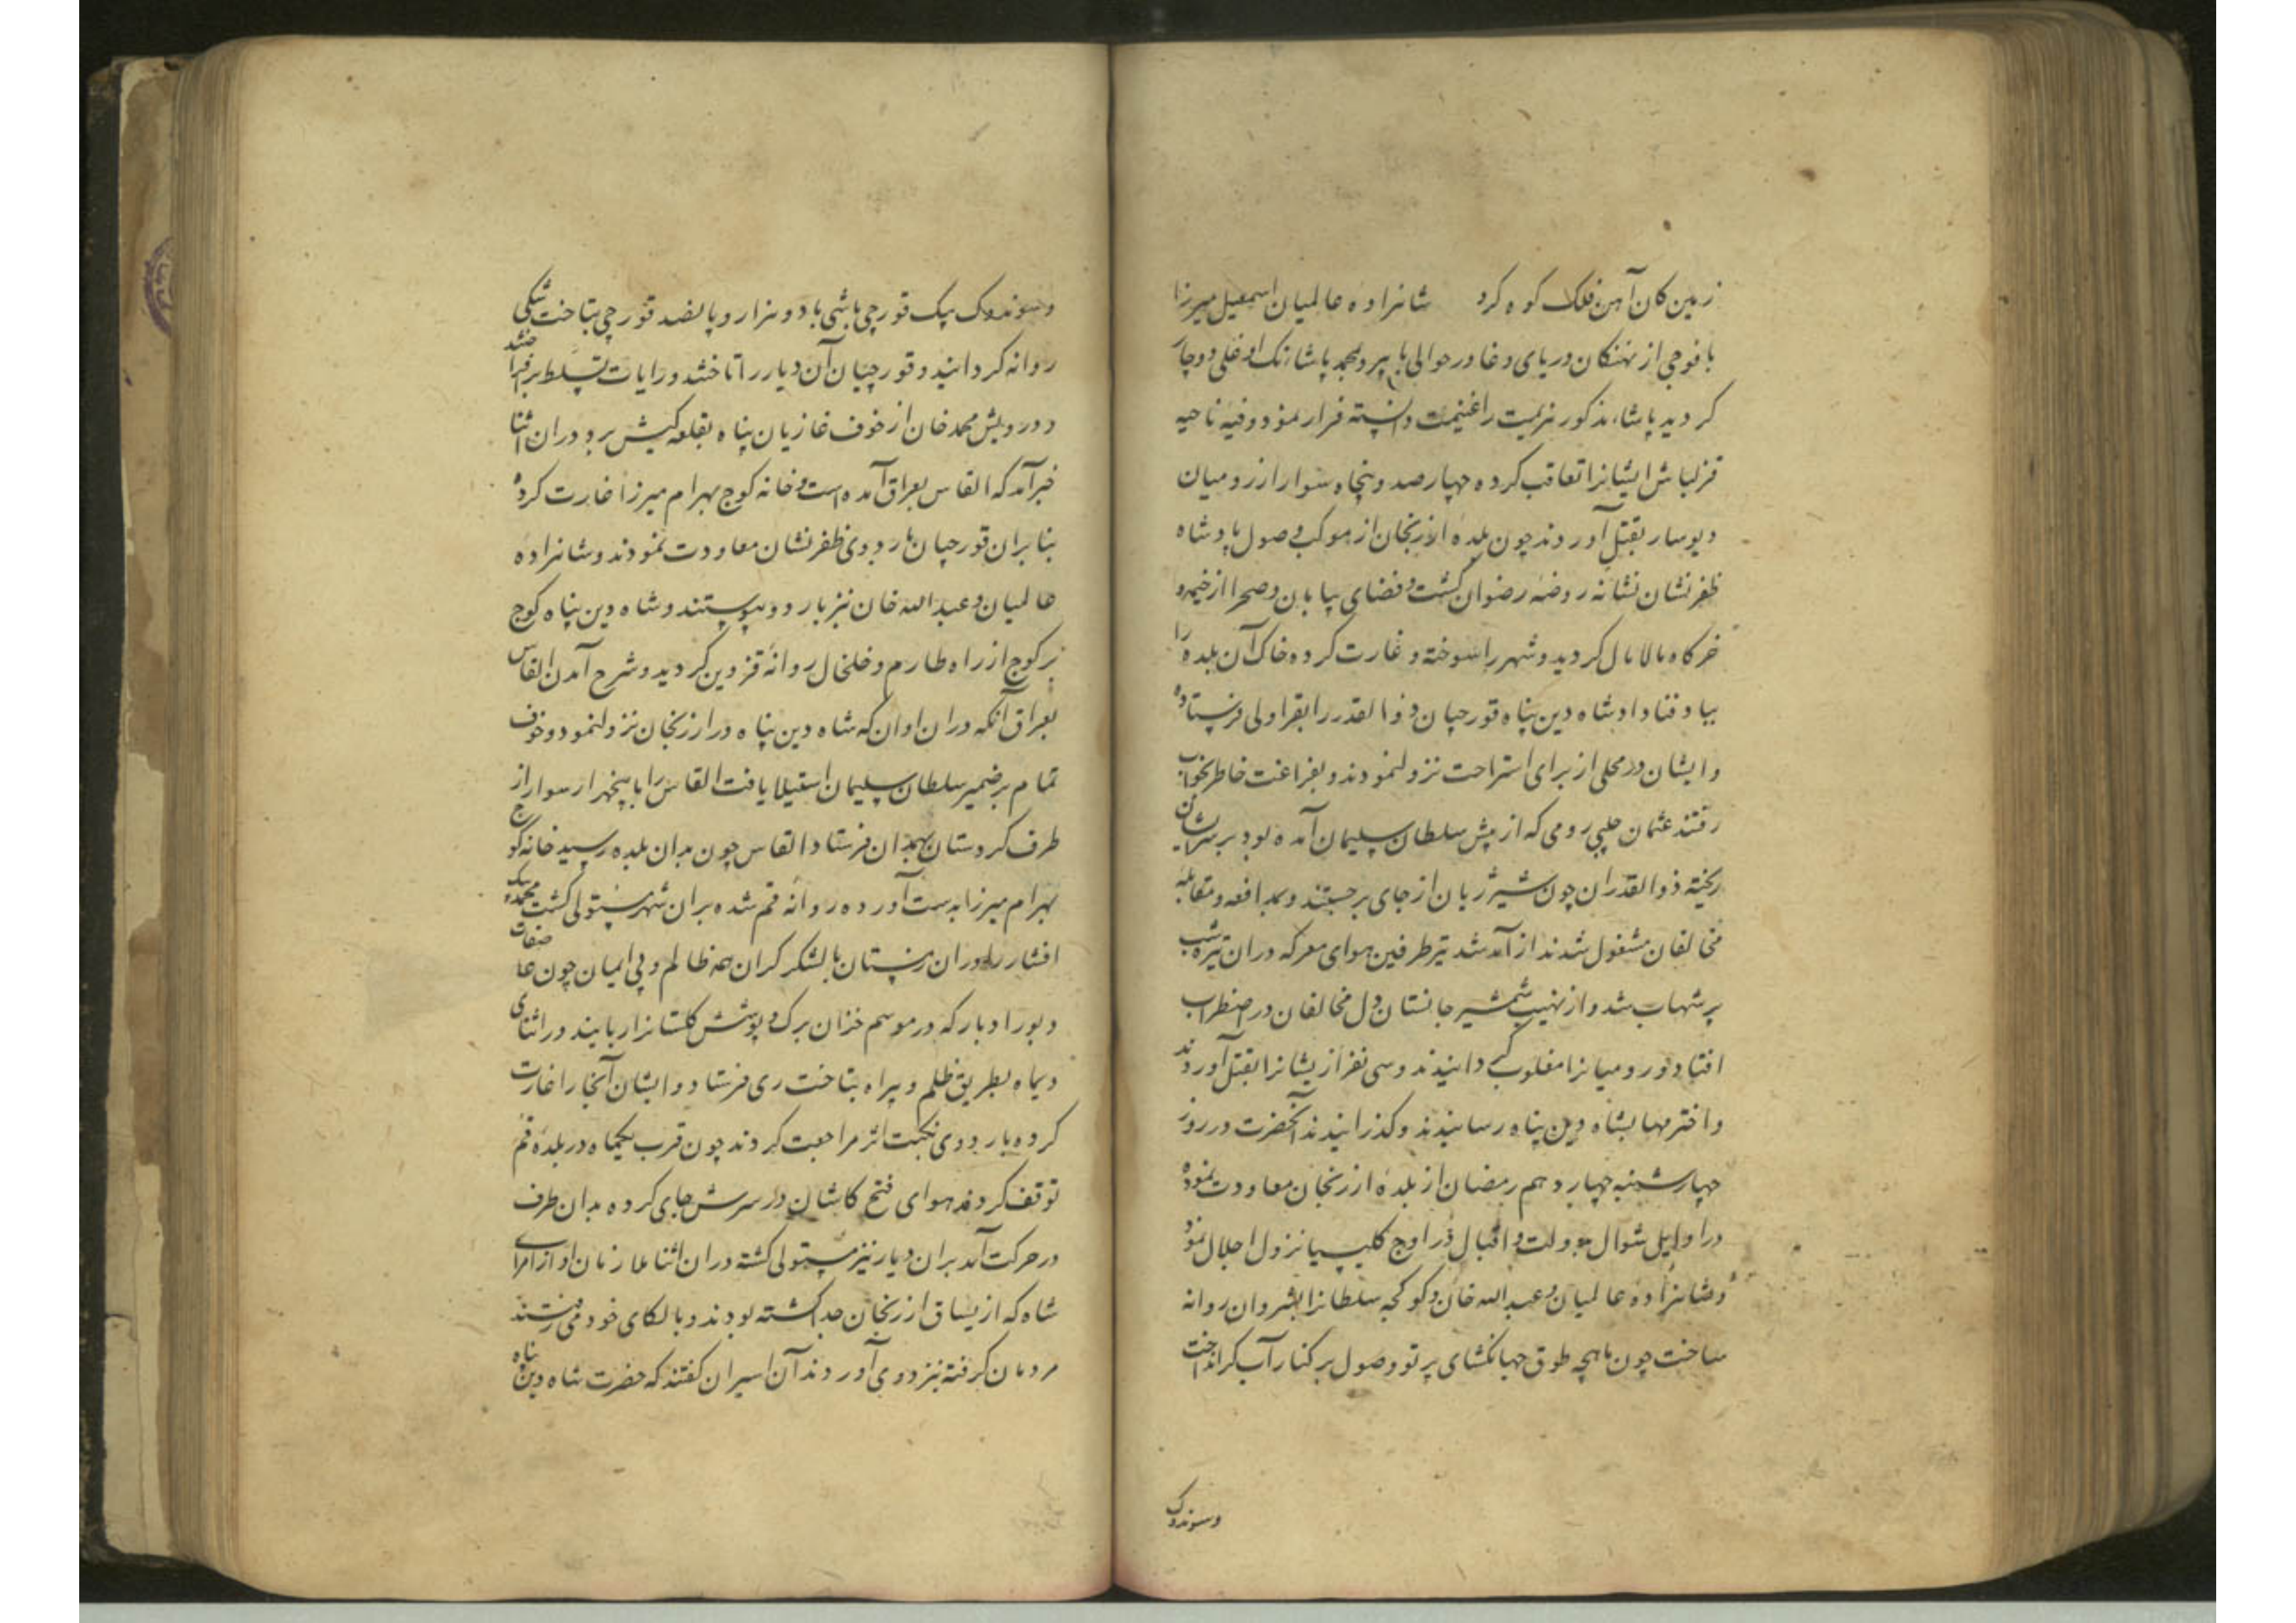 زمین کان آهن فلک کوه کرد شاهزاده عالمیان اسمعیل میرزا
با فوجی از نهنکان دریای وغا در حوالی با پیر و محمد پاشا نک اوغلی دوچار
کردید پاشاء مذکور هزیمت را غنیمت دانسته فرار نمود وفیه ناحیه
قزلباش ایشانرا تعاقب کرده چهارصد و پنجاه سوار از رومیان
دیوسار بقتل آوردند چون بلده ارزنجان از موکب وصول پادشاه
ظفرنشان نشانه روضه رضوان کشت و فضای بیابان و صحرا از خیمه و
خرکاه مالامال کردید و شهر را سوخته و غارت کرده خاک آن بلده را
بباد فنا داد شاه دین پناه قورچیان ذوالقدر را بقراولی فرستاده
و ایشان در محلی از برای استراحت نزول نمودند و بفراغت خاطر بخواب
رفتند عثمان چلبی رومی که از پیش سلطان سلیمان آمده بود بر سر ایشان
ریخته ذوالقدران چون شیر ژیان از جای برجستند و بمدافعه و مقابله
مخالفان مشغول شدند از آمد شد تیر طرفین هوای معرکه در ان تیره شب
پر شهاب شد و از نهیب شمشیر جانستان دل مخالفان در اضطراب
افتاد و رومیانرا مغلوب کردانیدند و سی نفر از یشانرا بقتل آوردند
و اخترمها بشاه دین پناه رسانیدند و کذرانیدند آنحضرت در روز
چهارشنبه چهاردهم رمضان از بلده ارزنجان معاودت نموده
در اوایل شوال بدولت و اقبال در اوج کلیسیا نزول اجلال نمود
و شاهزاده عالمیان و عبدالله خان و کوکجه سلطانرا بشروان روانه
ساخت چون ماهچه طوق جهانکشای پرتو وصول بر کنار آب کر انداخت
وسوندوک
و سوندوک بیک قورچی باشی با دو هزار و پانصد قورچی بتاخت شکی
روانه کردانید و قورچیان آن دیار را تاختند و رایات تسلط بر افراختند
و درویش محمد خان از خوف غازیان پناه بقلعه کیش برد در ان اثنا
خبر آمد که القاس بعراق آمده است و خانه کوچ بهرام میرزا غارت کرده
بنا بران قورچیان باردوی ظفرنشان معاودت نمودند و شاهزاده
عالمیان و عبدالله خان نیز باردو پیوستند و شاه دین پناه کوچ
بر کوچ از راه طارم و خلخال روانه قزوین کردید و شرح آمدن القاس
بعراق آنکه در ان اوان که شاه دین پناه در ارزنجان نزول نمود و خوف
تمام بر ضمیر سلطان سلیمان استیلا یافت القاس را با پنجهزار سوار از
طرف کردستان بهمدان فرستاد القاس چون بدان بلده رسید خانه کوچ
بهرام میرزا بدست آورده روانه قم شده بران شهر مستولی کشت محمد بیک
افشار را در ان زمستان با لشکر کران همه ظالم و بی ایمان چون عا صفات
دبور ادبار که در موسم خزان برک و پوشش کلستانرا ربایند در اثنای
دیماه بطریق ظلم و بیراه بتاخت ری فرستاد و ایشان آنجا را غارت
کرده باردوی نکبت اثر مراجعت کردند چون قرب یکماه در بلده قم
توقف کردند هوای فتح کاشان در سرش جای کرده بدان طرف
در حرکت آمد بران دیار نیز مستولی کشته در ان اثنا ملازمان او از امرای
شاه که از یساق ارزنجان جدا کشته بودند و بالکای خود می رفتند
مردمان کرفته نزد وی آوردند آن اسیران کفتند که حضرت شاه دین پناه